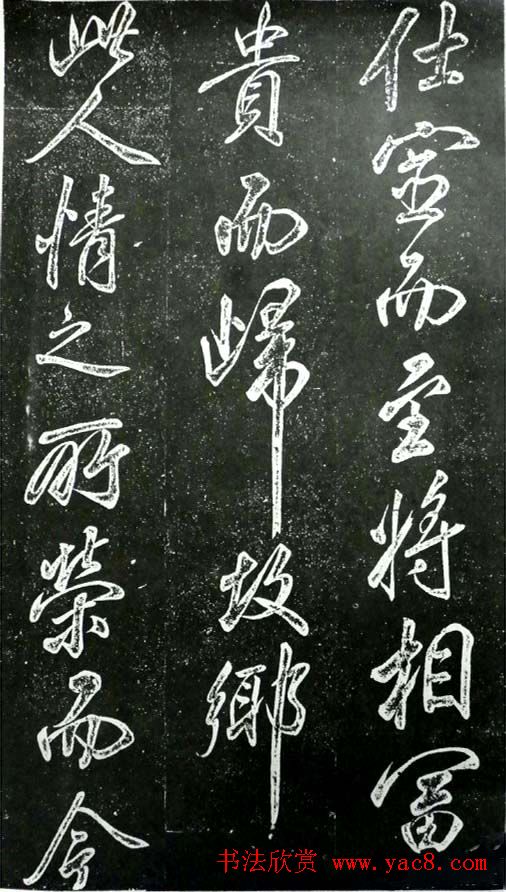 仕宦而至将相冨
貴而歸故鄉
此人情之所榮而今
书法欣赏 www.yac8.com